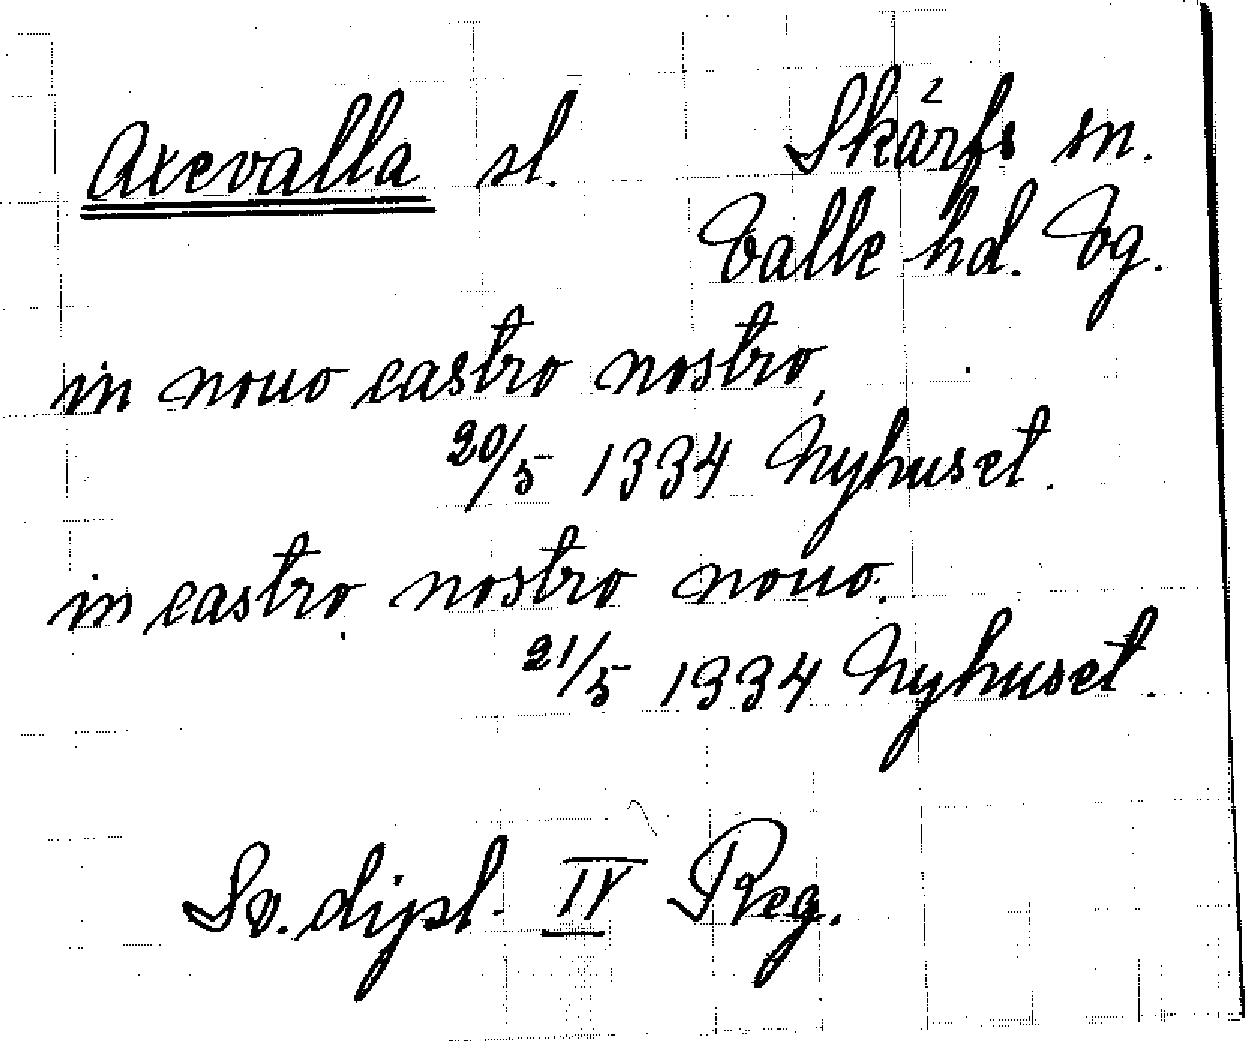 Axevalla sl. Skärfs sn.
Valle hd. Vg.
in nouo castro nostro,
20/5 1334 Nyhuset.
in castro nostro nouo.
21/5 1334 Nyhuset.
Sv. dipl. IV Reg.